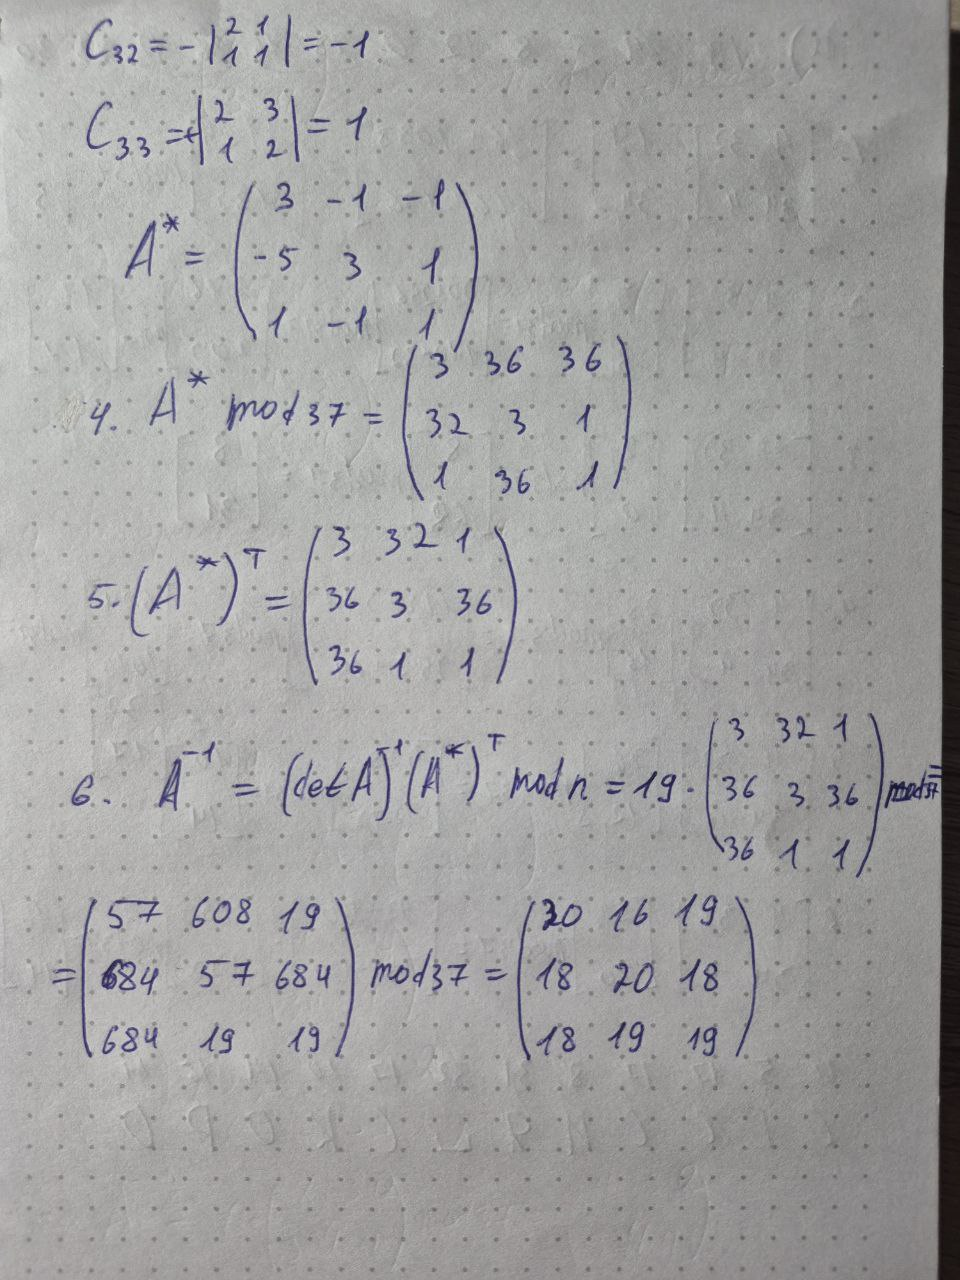 C₃₂ = - | 2 1 ; 1 1 | = -1
C₃₃ = + | 2 3 ; 1 2 | = 1
A* = ( 3 -1 -1 ; -5 3 1 ; 1 -1 1 )
4. A* mod 37 = ( 3 36 36 ; 32 3 1 ; 1 36 1 )
5. (A*)ᵀ = ( 3 32 1 ; 36 3 36 ; 36 1 1 )
6. A⁻¹ = (det A)⁻¹ (A*)ᵀ mod n = 19 · ( 3 32 1 ; 36 3 36 ; 36 1 1 ) mod 37 =
= ( 57 608 19 ; 684 57 684 ; 684 19 19 ) mod 37 = ( 20 16 19 ; 18 20 18 ; 18 19 19 )